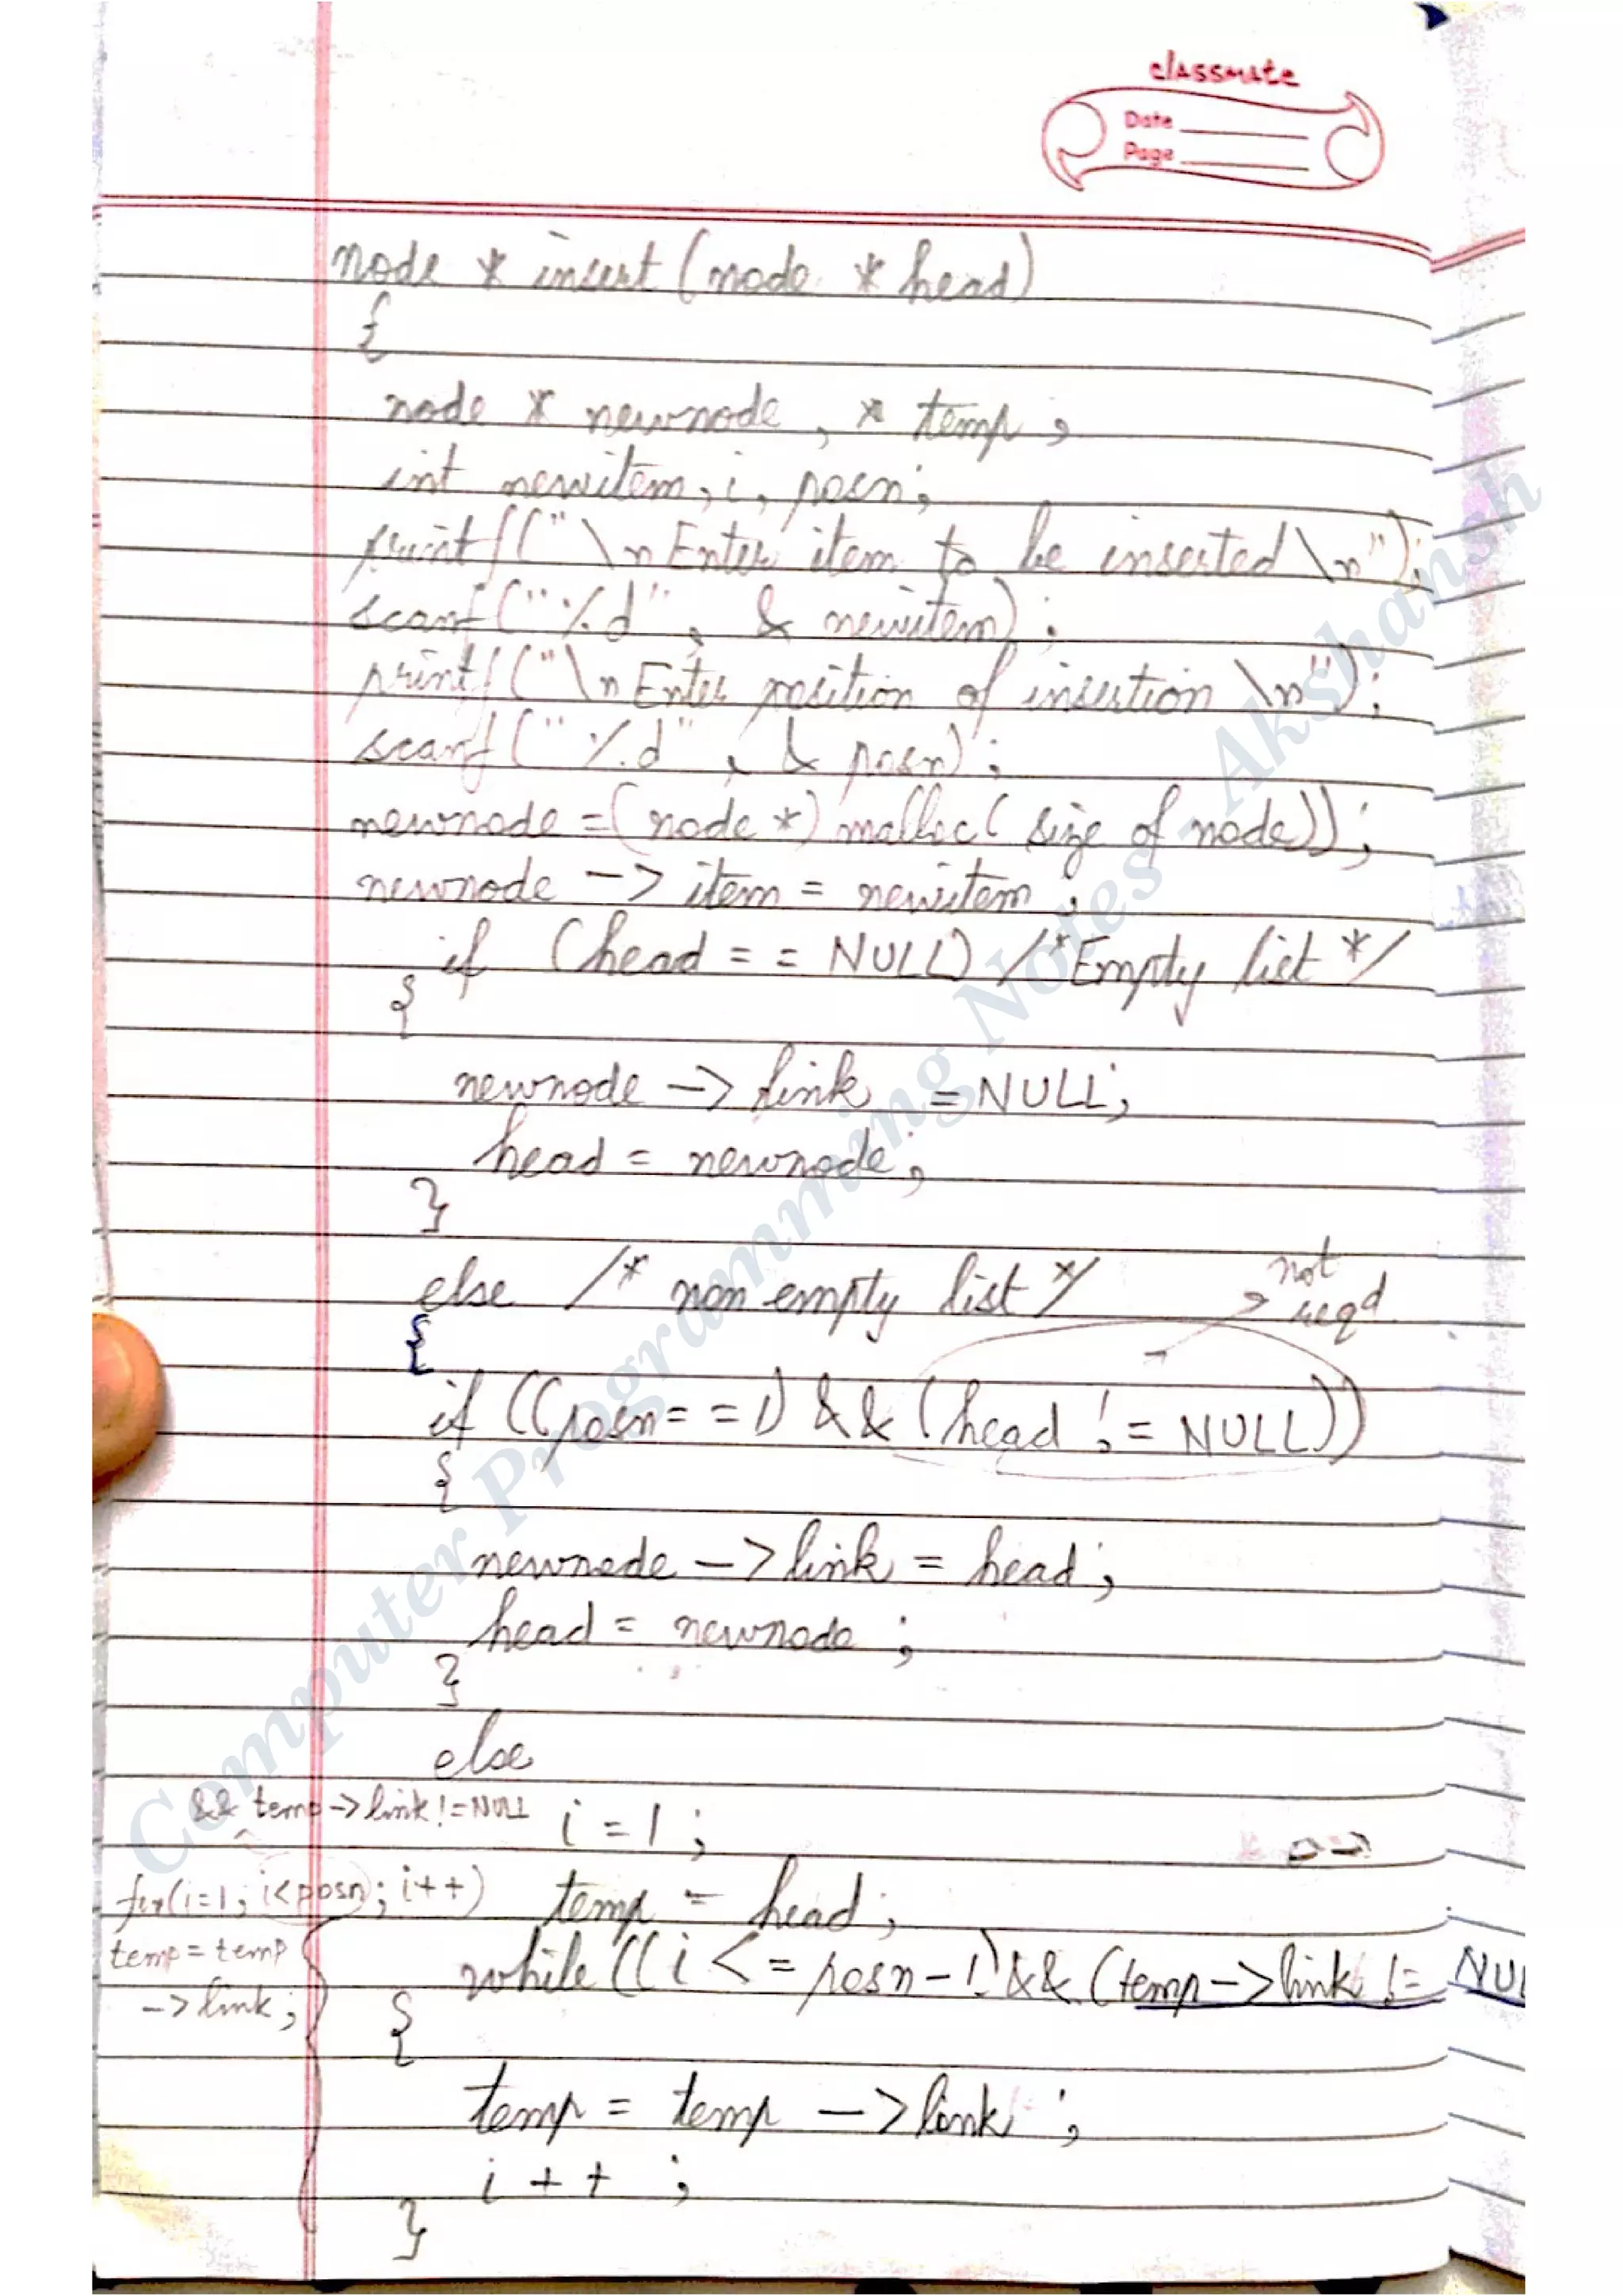 classmate
Date
Page
node * insert (node * head)
{
node * newnode, * temp,
int newitem, i, posn;
printf("\n Enter item to be inserted \n");
scanf("%d", & newitem);
printf("\n Enter position of insertion \n");
scanf("%d", & posn);
newnode = (node *) malloc( size of node));
newnode -> item = newitem ;
if (head = = NULL) /*Empty list */
{
newnode -> link = NULL;
head = newnode;
}
else /* non empty list */
not
reqd
{
if ((posn = = 1) && (head != NULL))
{
newnode -> link = head;
head = newnode ;
}
else
&& temp -> link != NULL
i = 1 ;
for(i=1; i<posn; i++)
temp = head;
temp = temp
-> link;
while ((i < = posn - 1) && (temp -> link != NUL
{
temp = temp -> link ;
i + + ;
}
Computer Programming Notes - Akshansh